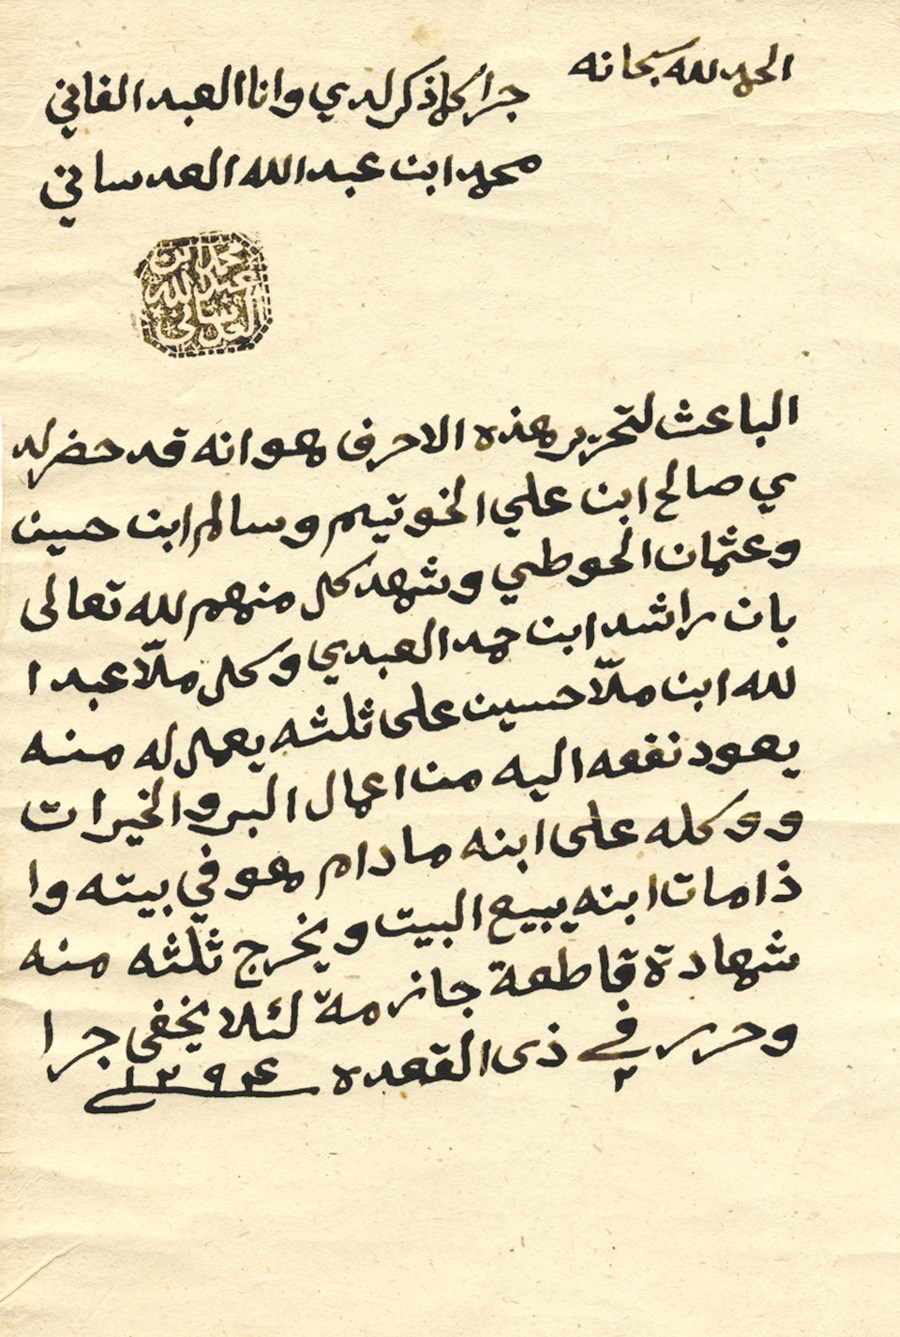 الحمد لله سبحانه
جرا كما ذكر لدي وانا العبد الفاني
محمد ابن عبد الله العدساني
محمد ابن
عبد الله
العدساني
الباعث لتحرير هذه الاحرف هو انه قد حضر لد
ي صالح ابن علي الخوتيم وسالم ابن حسين
وعثمان الحوطي وشهد كل منهم لله تعالى
بان راشد ابن حمد العبدي وكل ملّا عبد ا
لله ابن ملّا حسين على ثلثه يعمل له منه
يعود نفعه اليه من اعمال البر والخيرات
ووكله على ابنه مادام هو في بيته وا
ذا مات ابنه يبيع البيت ويخرج ثلثه منه
شهادة قاطعة جازمة لئلا يخفى جرا
وحرر في ٢ ذى القعدة ١٢٩٤